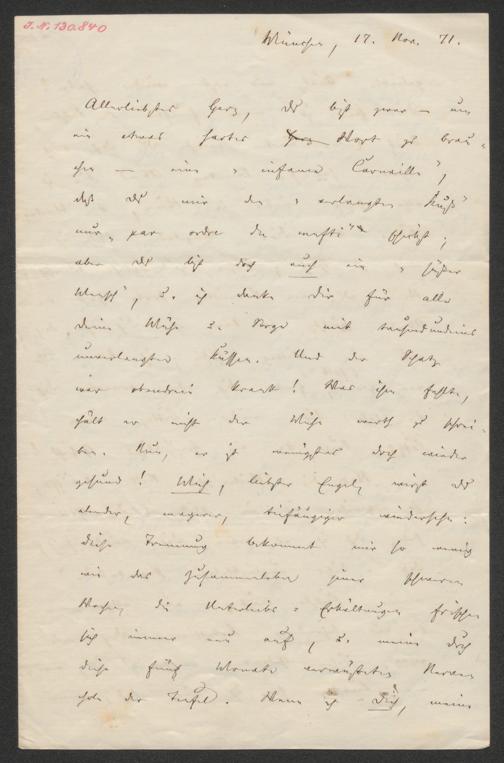 J. N. 130.840
München, 17. Nov. 71.
Allerliebstes Herz, Du bist zwar — um
ein etwas hartes Herz Wort zu brau-
chen — eine „infame Canaille",
daß Du mir den „verlangten Kuß"
nur „par ordre du mufti" schickst;
aber Du bist doch auch ein „süßer
Mensch", u. ich danke Dir für alle
Deine Mühe u. Sorge mit tausendundeins
unverlangten Küssen. Und der Schatz
war obendrein krank! Was ihm fehlte,
hält er nicht der Mühe werth zu schrei-
ben. Nun, er ist wenigstens doch wieder
gesund! Mich, liebster Engel, wirst Du
elender, magerer, tiefäugiger wiedersehn:
diese Trennung bekommt mir so wenig
wie das Zusammenleben jener schweren
Wochen, die Unterleibs-Erkältungen frischen
sich immer neu auf, u. meine durch
diese fünf Monate verwüsteten Nerven
hole der Teufel. Wenn ich Dich, meine